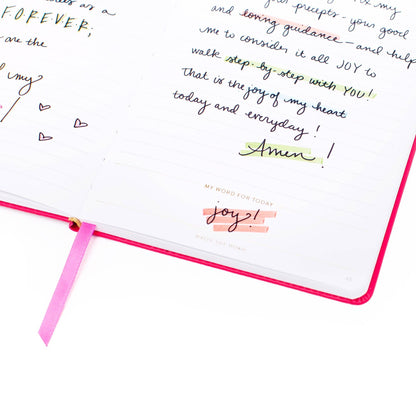 as a
F.O.R.E.V.E.R;
are the
my
my
and
your precepts - your good
and loving guidance - and help
me to consider it all JOY to
walk step-by-step with YOU!
That is the joy of my heart
today and everyday!
Amen!
MY WORD FOR TODAY
joy!